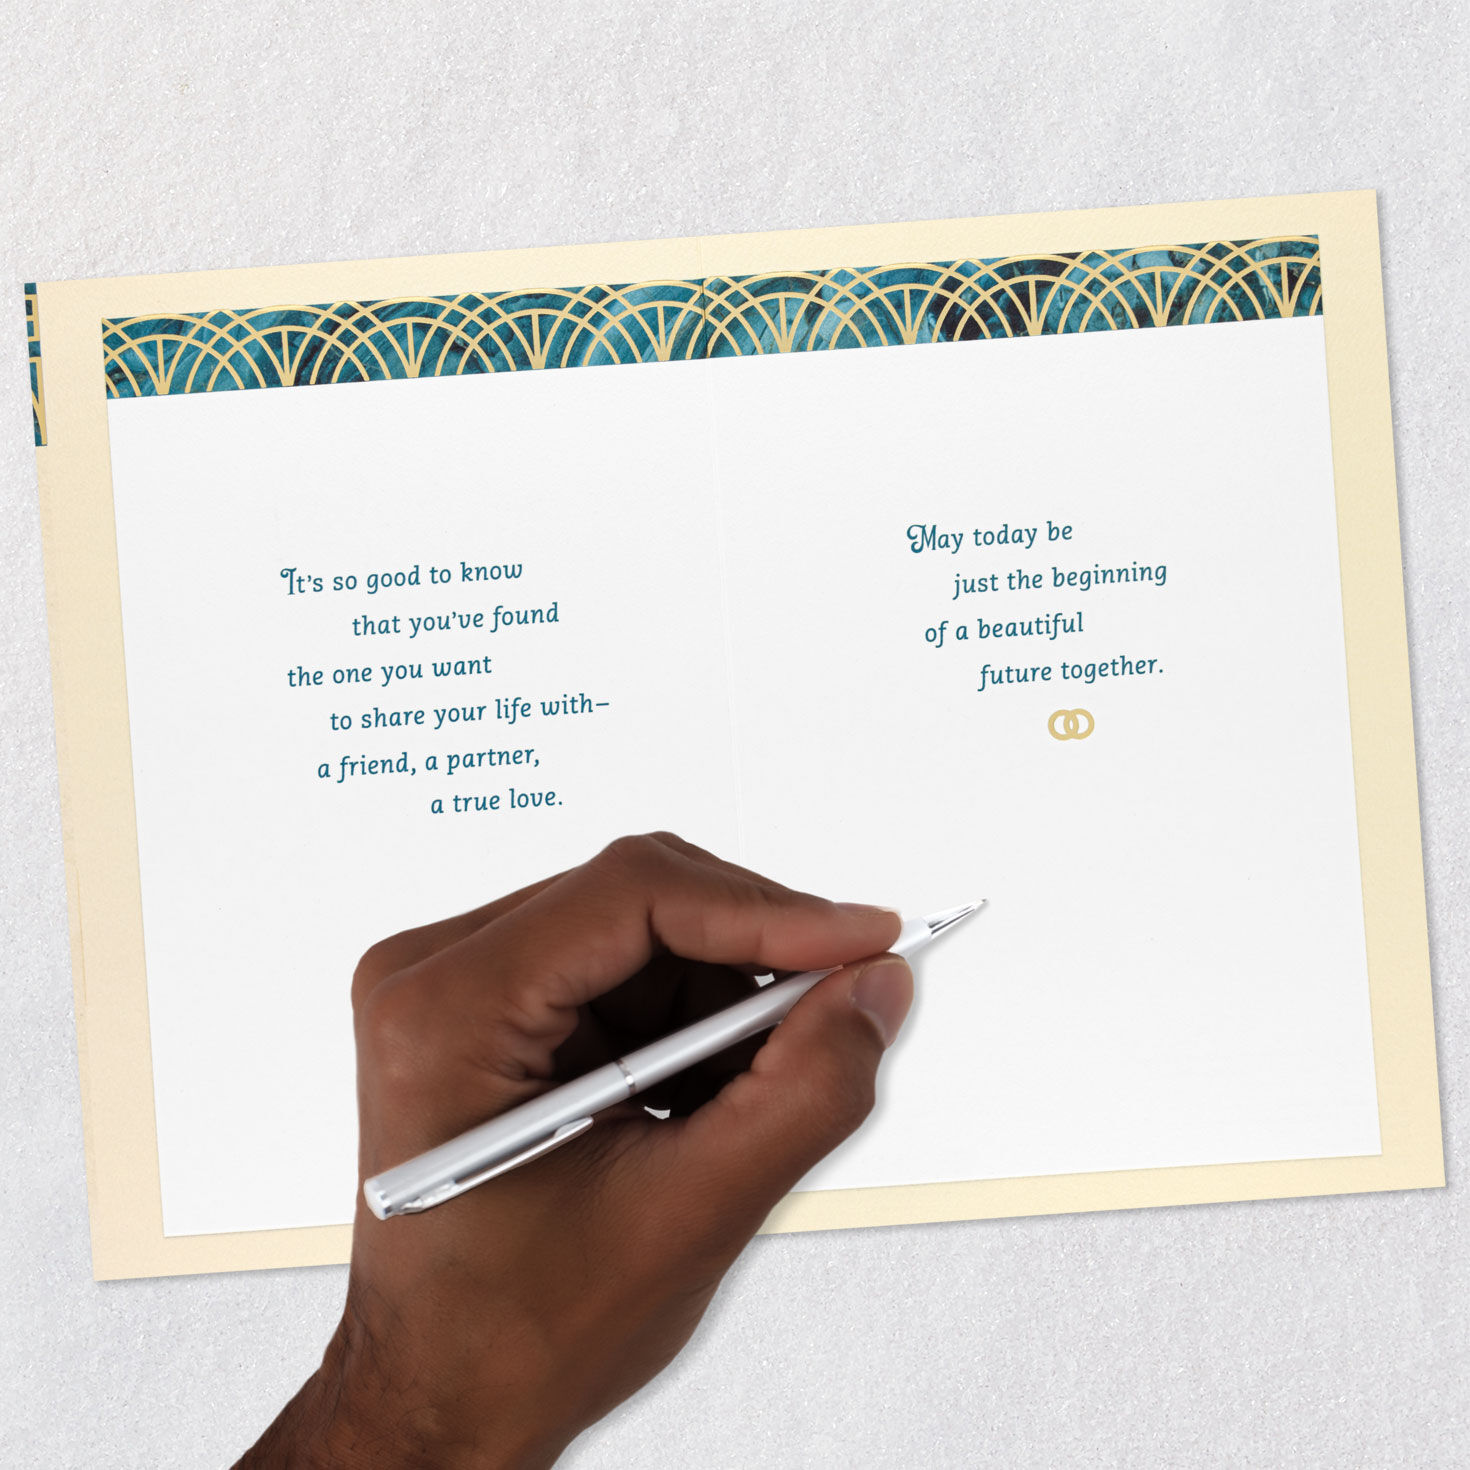 It's so good to know
that you've found
the one you want
to share your life with–
a friend, a partner,
a true love.
May today be
just the beginning
of a beautiful
future together.